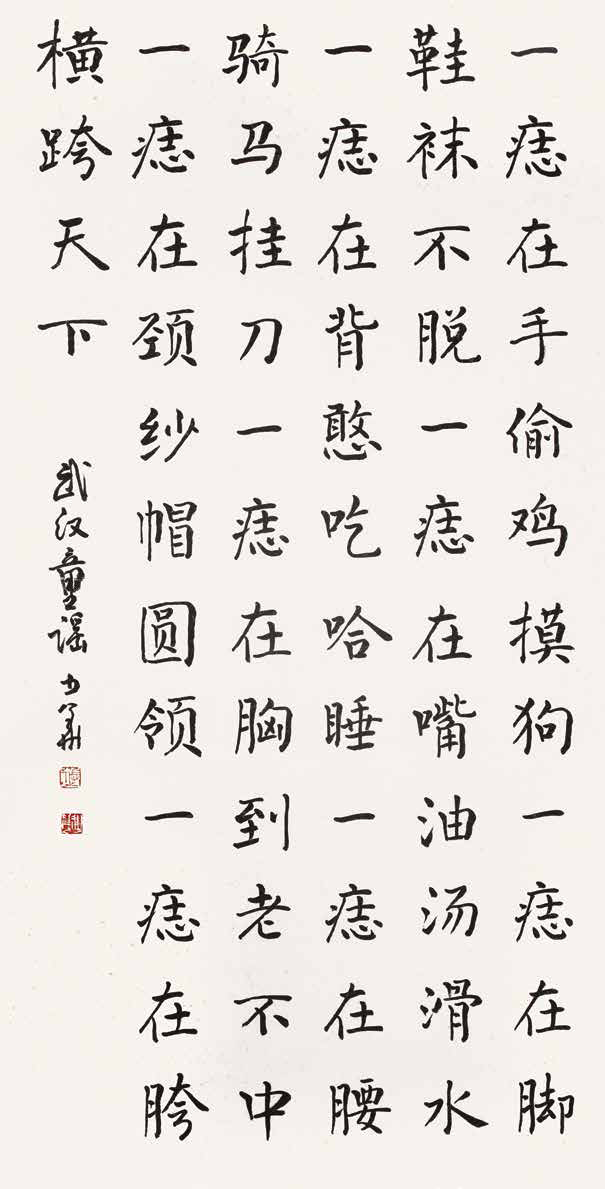 一痣在手偷鸡摸狗一痣在脚
鞋袜不脱一痣在嘴油汤滑水
一痣在背憨吃哈睡一痣在腰
骑马挂刀一痣在胸到老不中
一痣在颈纱帽圆领一痣在胯
横跨天下
武汉童谣